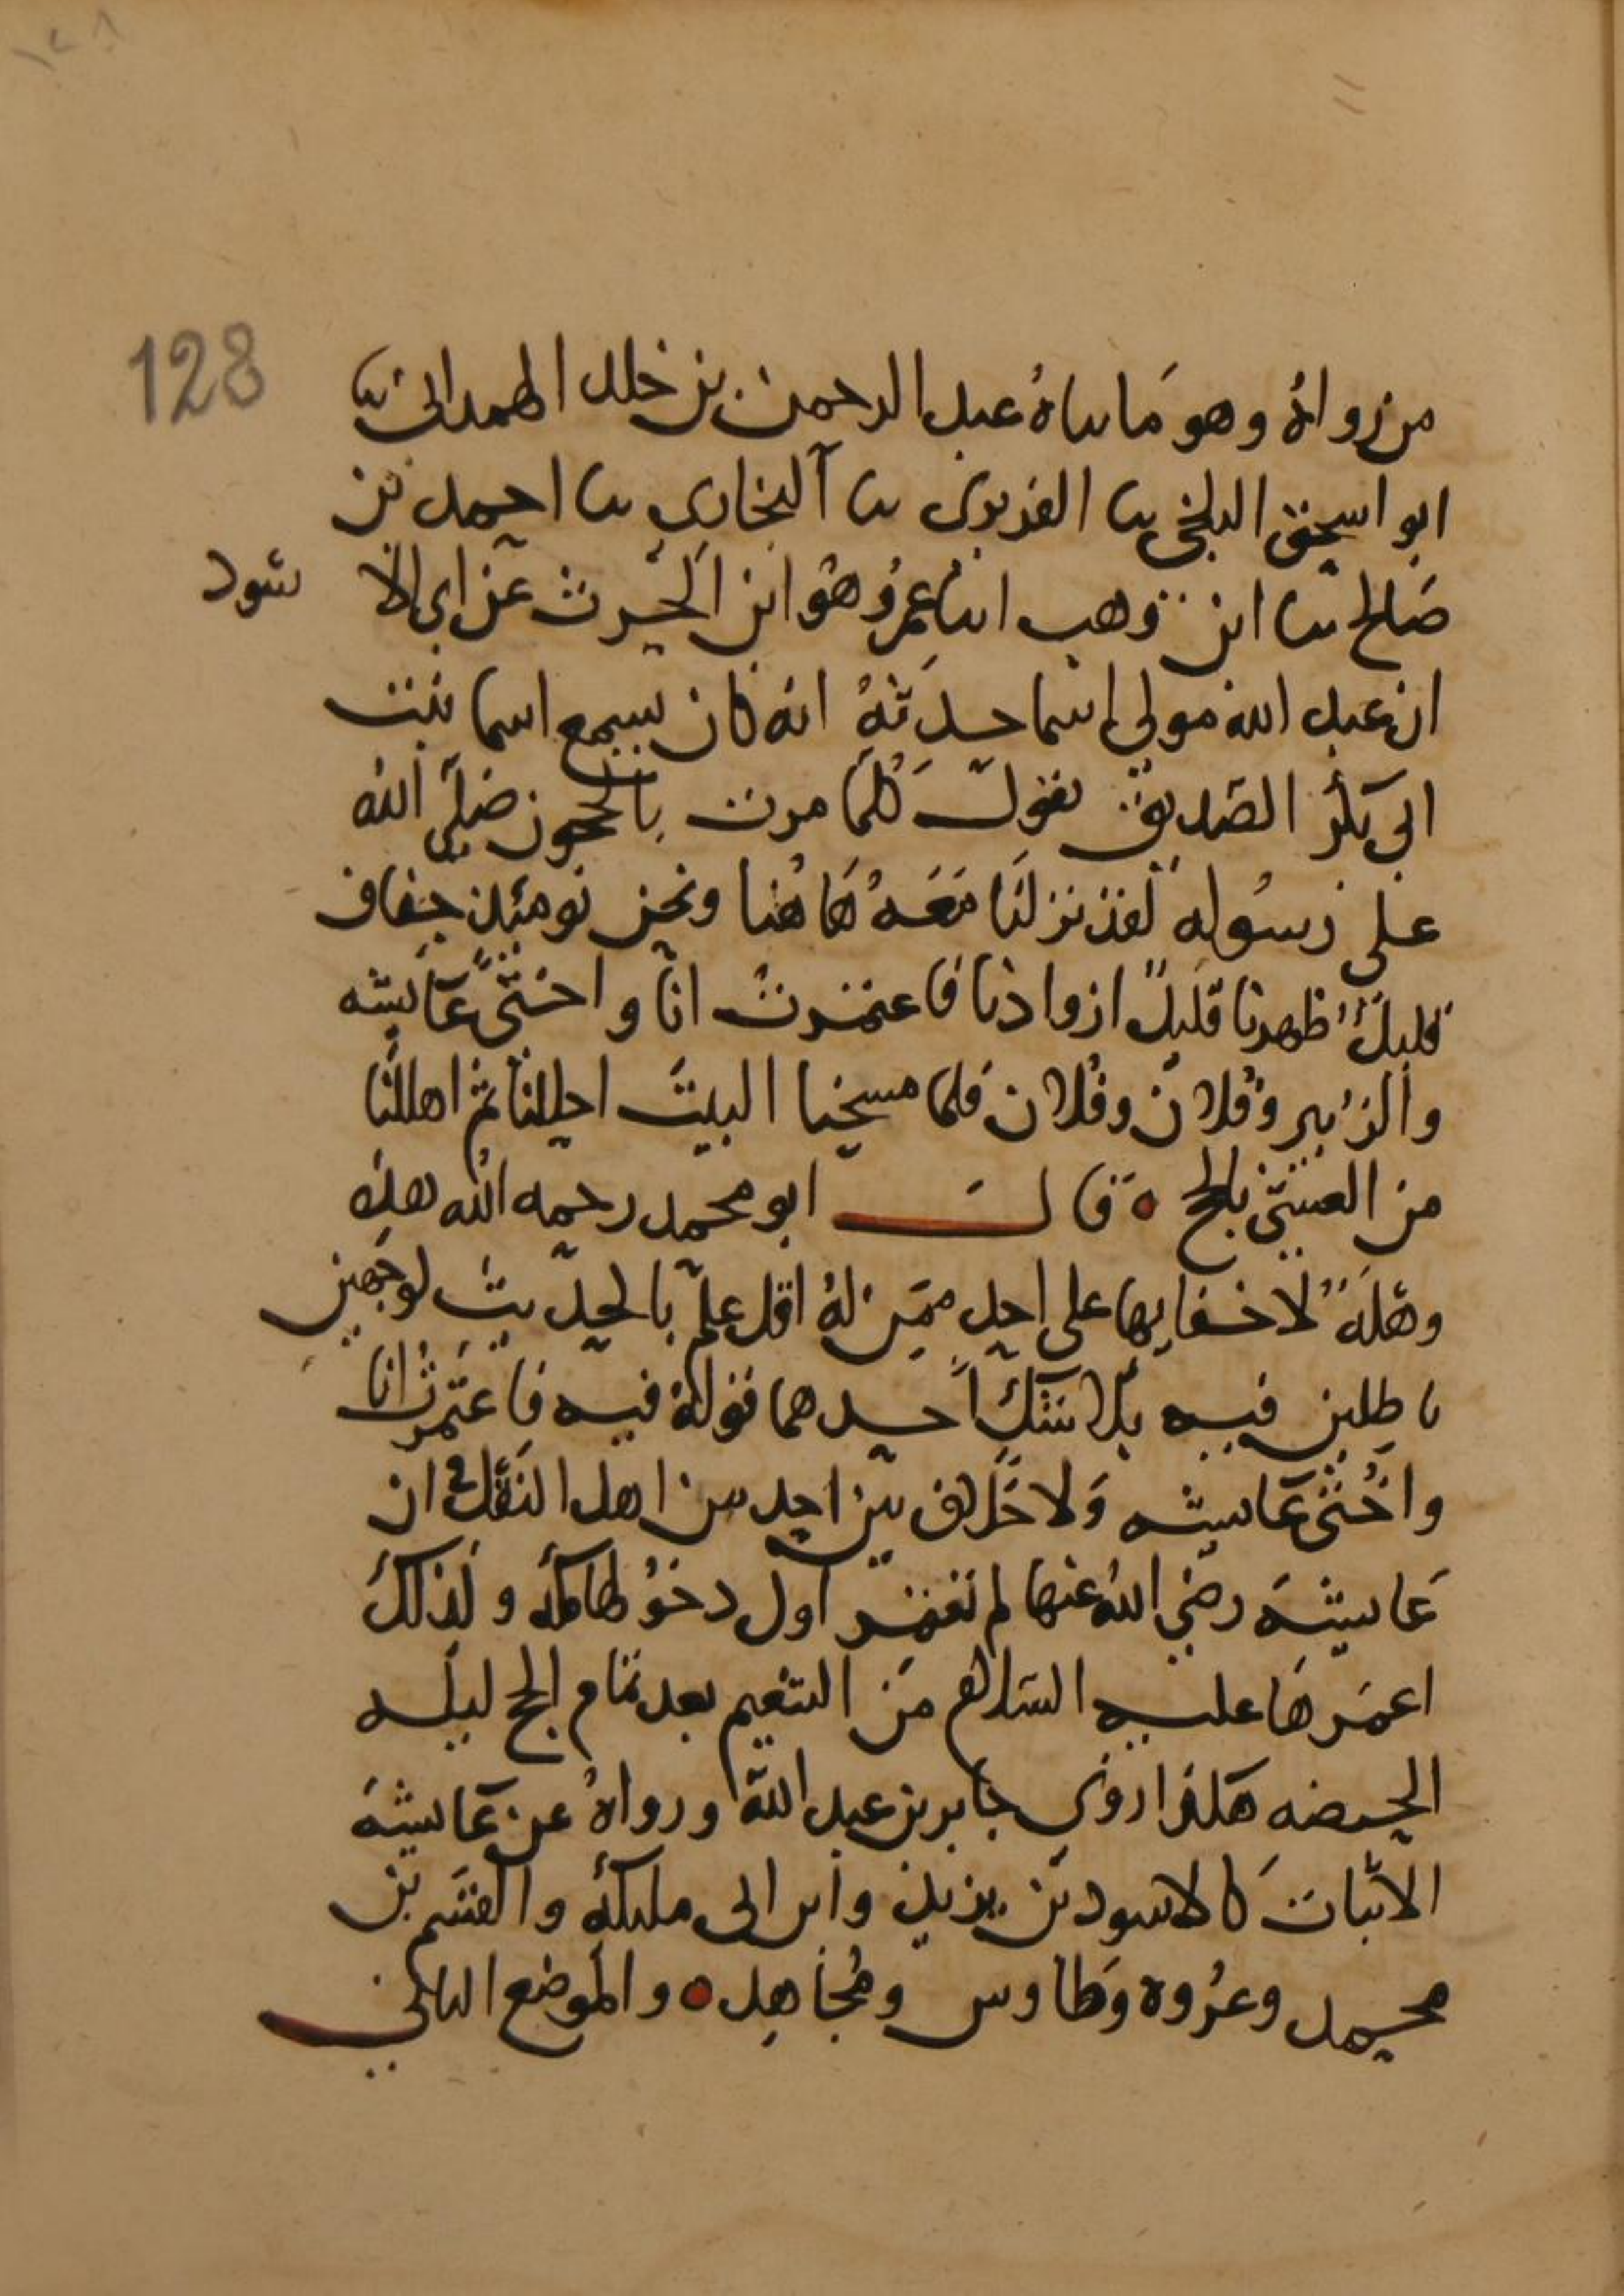 ١٢٨
128
من رواه وهو ما ساه عبد الرحمن بن خلد الهمداني سا
ابو اسحق البلخي سا الفربري سا البخاري سا احمد بن
صالح سا ابن وهب انا عمرو هو ابن الحرث عن ابي الا سود
ان عبد الله مولى اسما حدثه انه كان يسمع اسما بنت
ابي بكر الصديق تقول كلما مرت بالحجون صلى الله
على رسوله لقد نزلنا معه هاهنا ونحن يومئذ خفاف
قليل ظهرنا قليل ازوادنا فاعتمرت انا واختي عايشه
والزبير وفلان وفلان فلما مسحنا البيت احللنا ثم اهللنا
من العشي بالحج ه قال ابو محمد رحمه الله هذه
وهلة لا خفا بها على احد ممن له اقل علم بالحديث لوجهين
باطلين فيه بلا شك احدهما قوله فيه فاعتمرت انا
واختي عايشه ولا خلاف بين احد من اهل النقل في ان
عايشة رضي الله عنها لم تعتمر اول دخولها مكة ولذلك
اعمرها عليه السلام من التنعيم بعد تمام الحج ليله
الحصبه هكذا روى جابر بن عبد الله ورواه عن عايشة
الاثبات كالاسود بن يزيد وابن ابي مليكة والقسم بن
محمد وعروه وطاوس ومجاهد ه والموضع الثاني